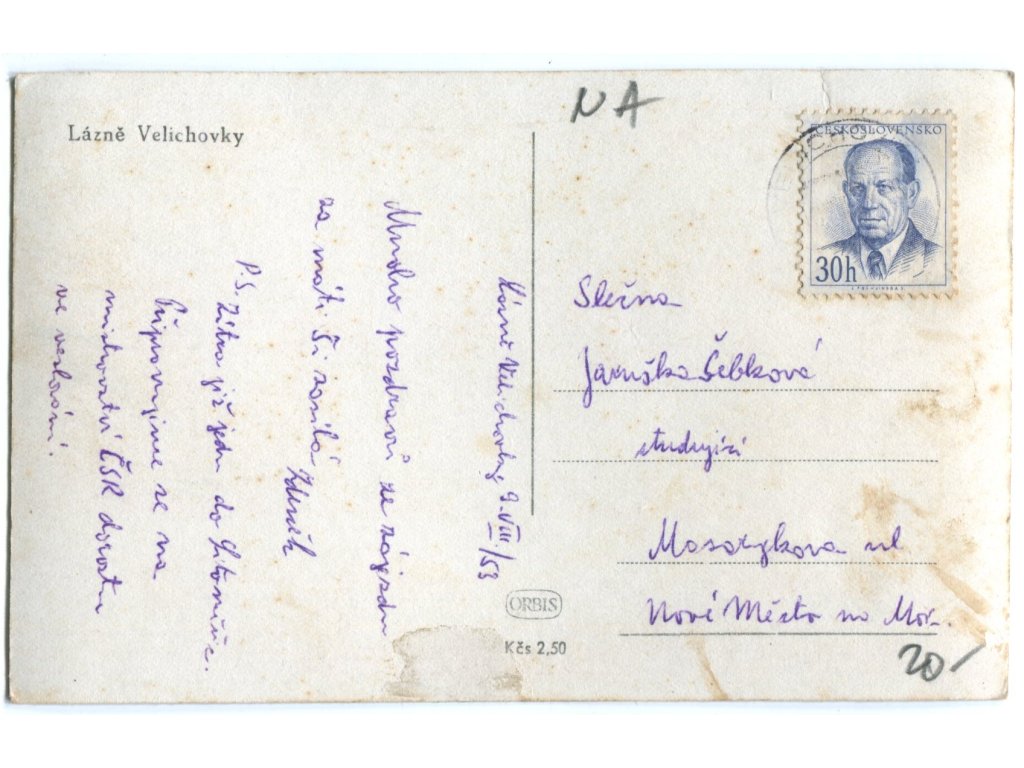 Lázně Velichovky
NA
ČESKOSLOVENSKO
30h
Lázně Velichovky 9.VIII./53
Mnoho pozdravů ze zájezdu
za máti Ti zasílá
Zdeněk
P.S. Zítra již jedu do Litoměřic.
Připravujeme se na
mistrovství ČSR dorostu
ve veslování.
Slečna
Jaruška Šebková
studující
Masarykova ul
Nové Město na Mor.
ORBIS
Kčs 2,50
20